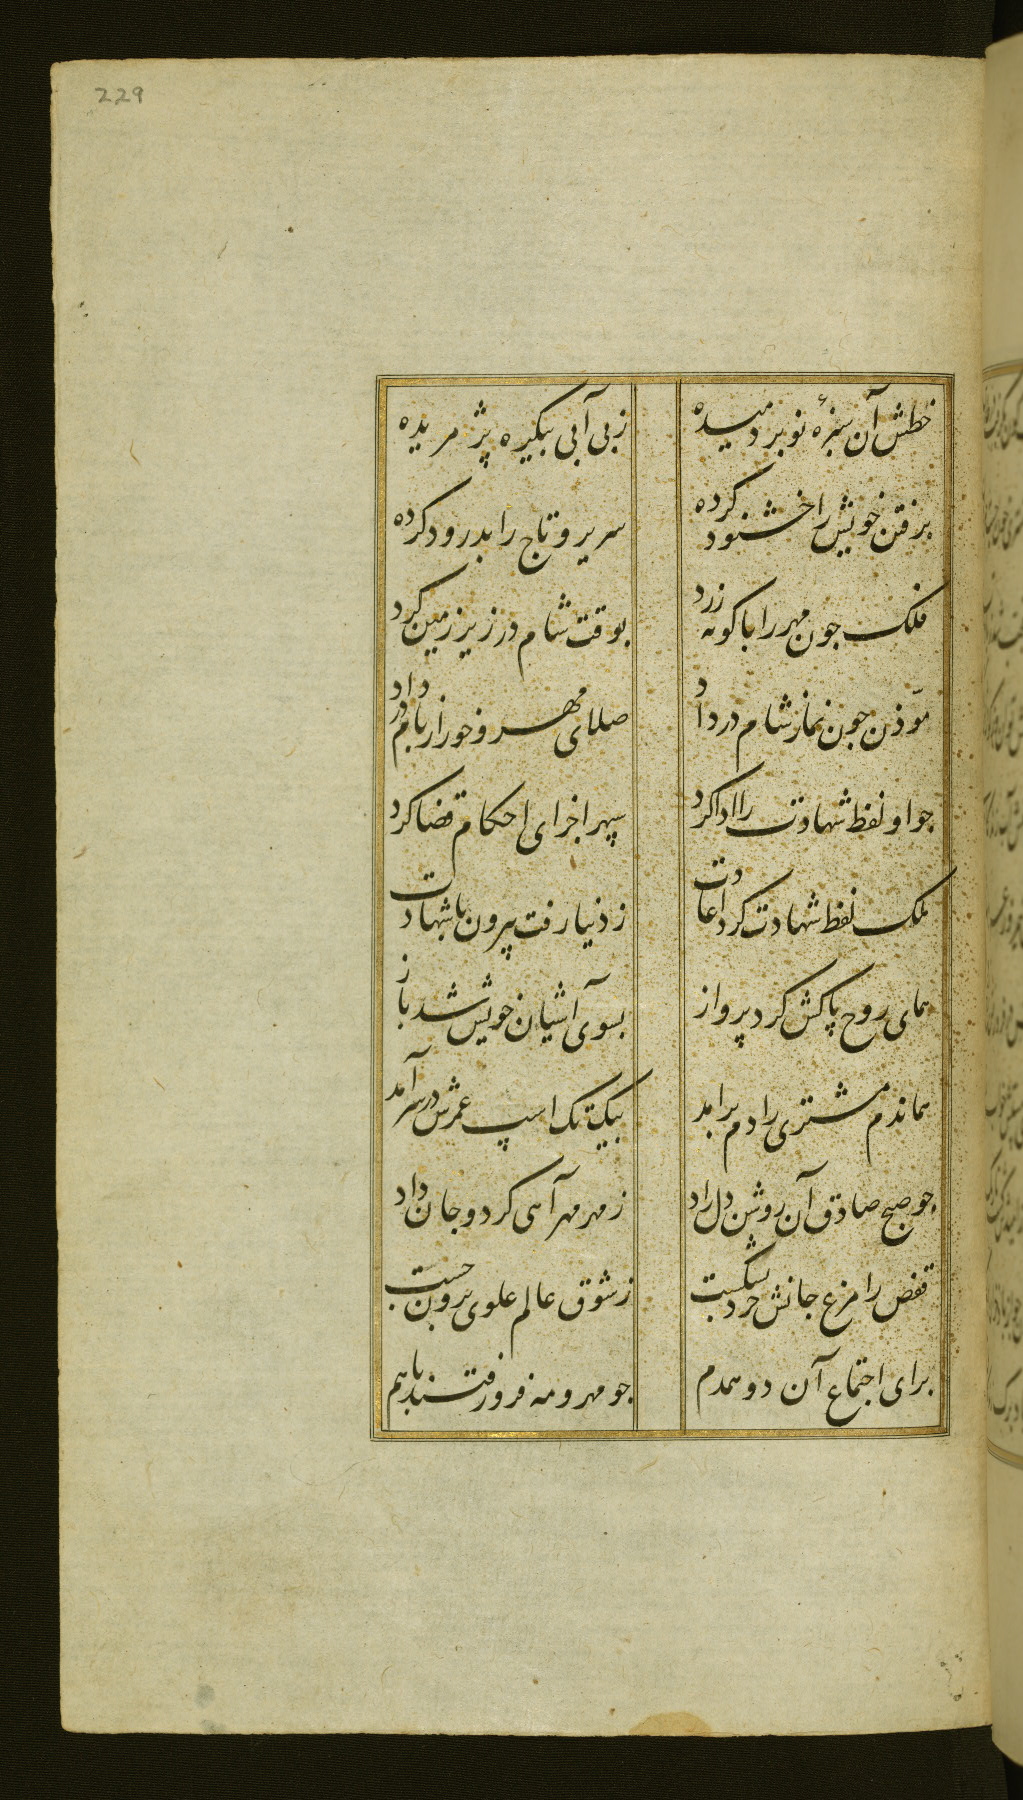 229
خطش آن سبزهٔ نوبر دمیده
زبی آبی بیکره پژمریده
برفتن خویش را خشنود کرده
سریر و تاج را بدرود کرده
فلک جون مهر را با کونه زرد
بوقت شام در زیر زمین کرد
مؤذن جون نماز شام در داد
صلای مهر و خور از بام در داد
جو او لفظ شهادت را ادا کرد
سپهر اجزای احکام قضا کرد
ملک لفظ شهادت کرد اعادت
ز دنیا رفت بیرون با شهادت
همای روح پاکش کرد پرواز
بسوی آشیان خویش شد باز
هماندم مشتری را دم برامد
بیک تک اسپ عمرش در سر آمد
جو صبح صادق آن روشن دل راد
ز مهر مهر آهی کرد و جان داد
قفص را مرغ جانش خرد بشکست
ز شوق عالم علوی برون جست
برای اجتماع آن دو همدم
جو مهر و مه فرو رفتند باهم